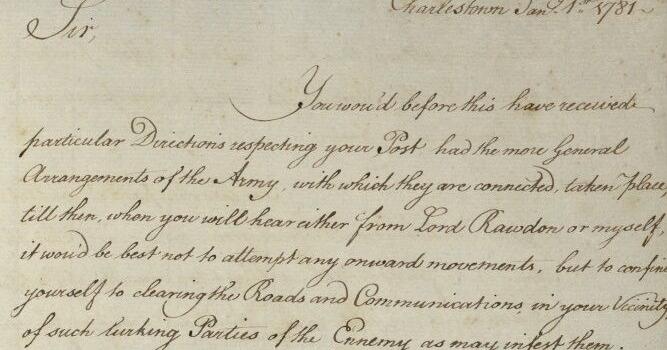 Charlestown Jan. 1st 1781
Sir,
You wou'd before this have received
particular Directions respecting your Post had the more General
Arrangements of the Army, with which they are connected, taken place,
till then, when you will hear either from Lord Rawdon or myself,
it wou'd be best not to attempt any onward movements, but to confine
yourself to clearing the Roads and Communications in your Vicinity
of such lurking Parties of the Ennemy as may infest them.